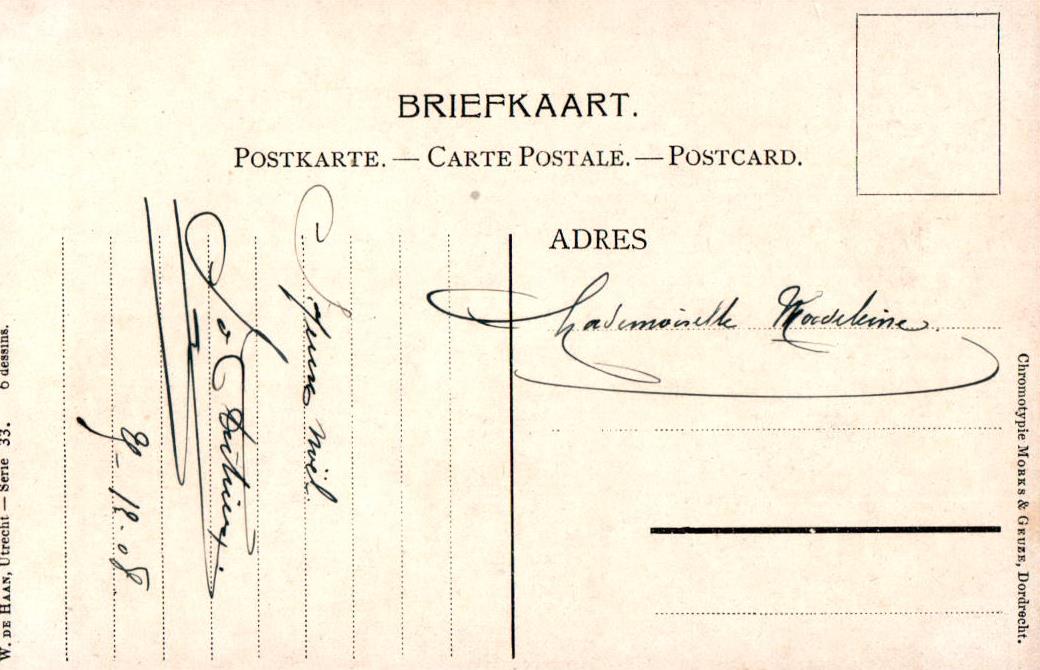 BRIEFKAART.
POSTKARTE. — CARTE POSTALE. — POSTCARD.
ADRES
Mademoiselle Madeleine.
Noël
12-08
W. DE HAAN, Utrecht — Serie 33. 6 dessins.
Chromotypie MORKS & GEUZE, Dordrecht.